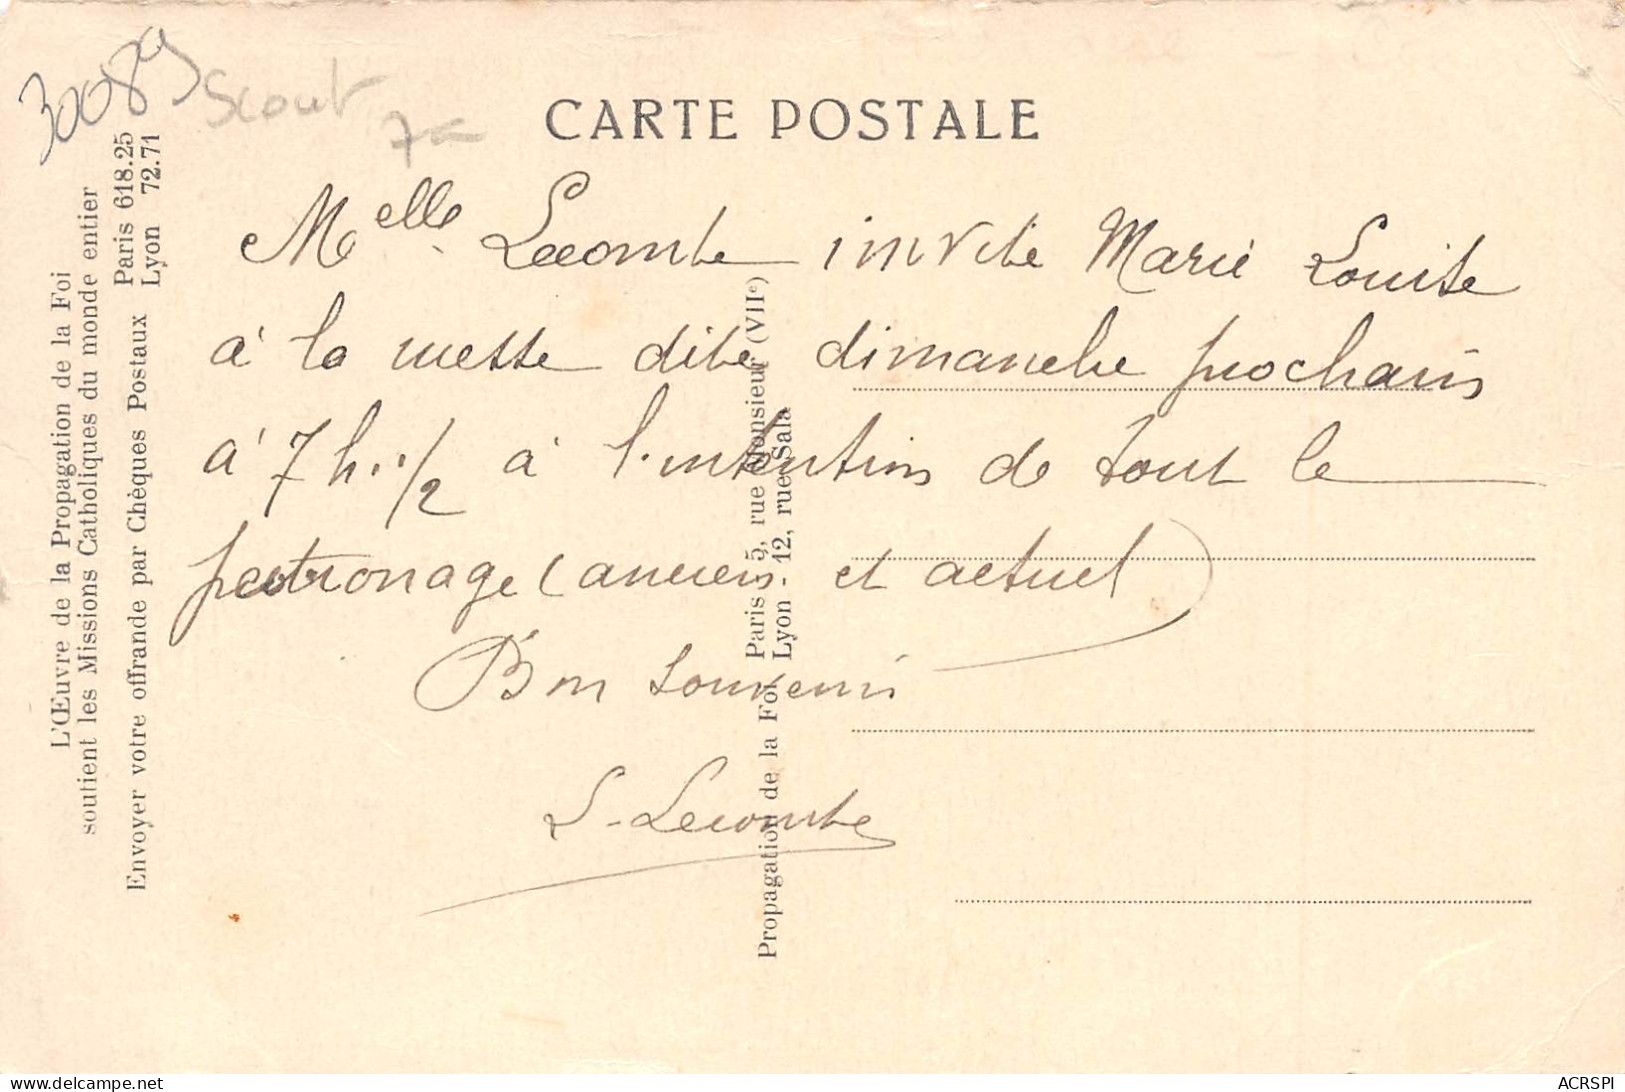 30089
Scout
7€
CARTE POSTALE
L'Œuvre de la Propagation de la Foi
soutient les Missions Catholiques du monde entier
Envoyer votre offrande par Chèques Postaux Paris 618.25
Lyon 72.71
Melle Lecomte invite Marie Louise
à la messe dite dimanche prochain
à 7 h. 1/2 à l'intention de tout le
patronage (anciens et actuel)
Bon souvenir
L. Lecomte
Propagation de la Foi Paris 5, rue Monsieur (VIIe)
Lyon 12, rue Sala
ACRSPI